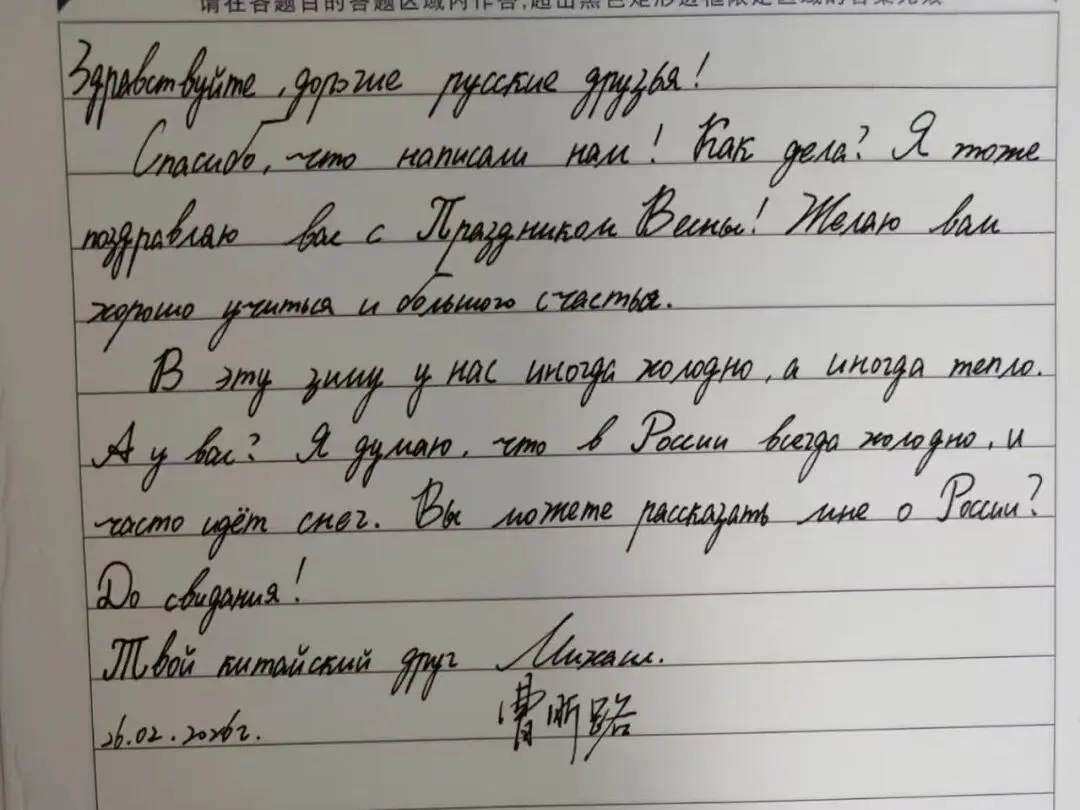 请在各题目的答题区域内作答,超出黑色矩形边框限定区域的答案无效
Здравствуйте, дорогие русские друзья!
Спасибо, что написали нам! Как дела? Я тоже
поздравляю вас с Праздником Весны! Желаю вам
хорошо учиться и большого счастья.
В эту зиму у нас иногда холодно, а иногда тепло.
А у вас? Я думаю, что в России всегда холодно, и
часто идёт снег. Вы можете рассказать мне о России?
До свидания!
Твой китайский друг Михаил.
26.02.2026г. 曹昕路